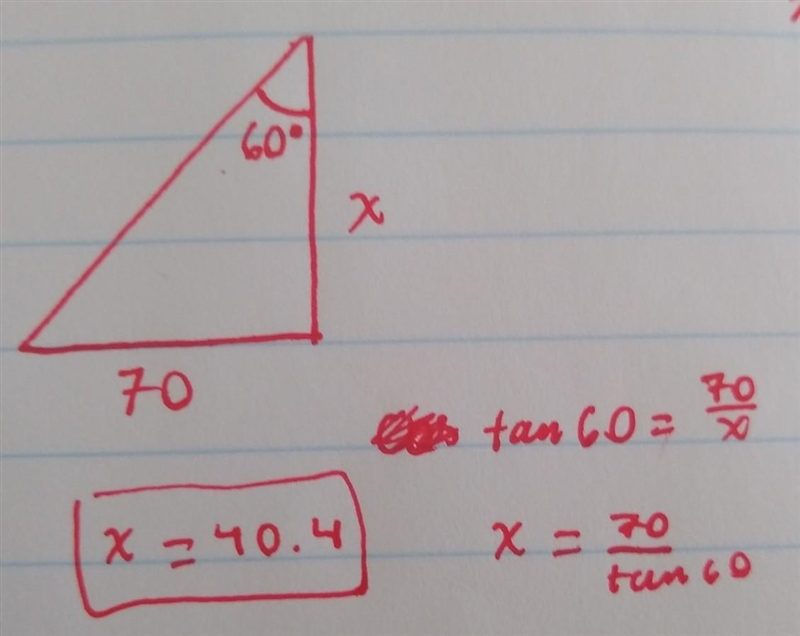 60°
x
70
tan 60 = 70/x
x = 70/tan 60
x = 40.4